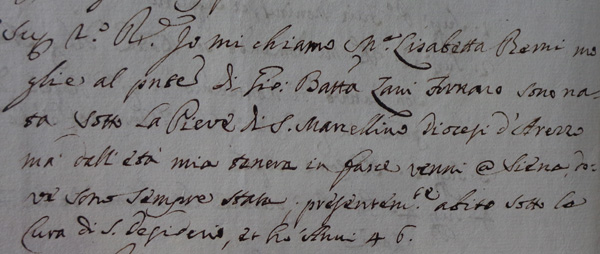 6 R.º R.e Io mi chiamo M.a Lisabetta Remi mo
glie al pnte di Gio: Batta Zani Fornaro sono na-
ta sotto la Pieve di S. Marcellino Diocesi d'Arezzo
ma dall'età mia tenera in fasce venni @ Siena, do-
ve sono sempre stata, presentem.te abito sotto la
Cura di S. Desiderio, et hò Anni 46.